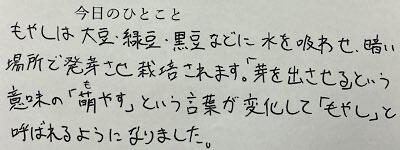 今日のひとこと
もやしは大豆・緑豆・黒豆などに水を吸わせ、暗い
場所で発芽させ栽培されます。「芽を出させる」という
意味の「萌やす」という言葉が変化して「もやし」と
呼ばれるようになりました。